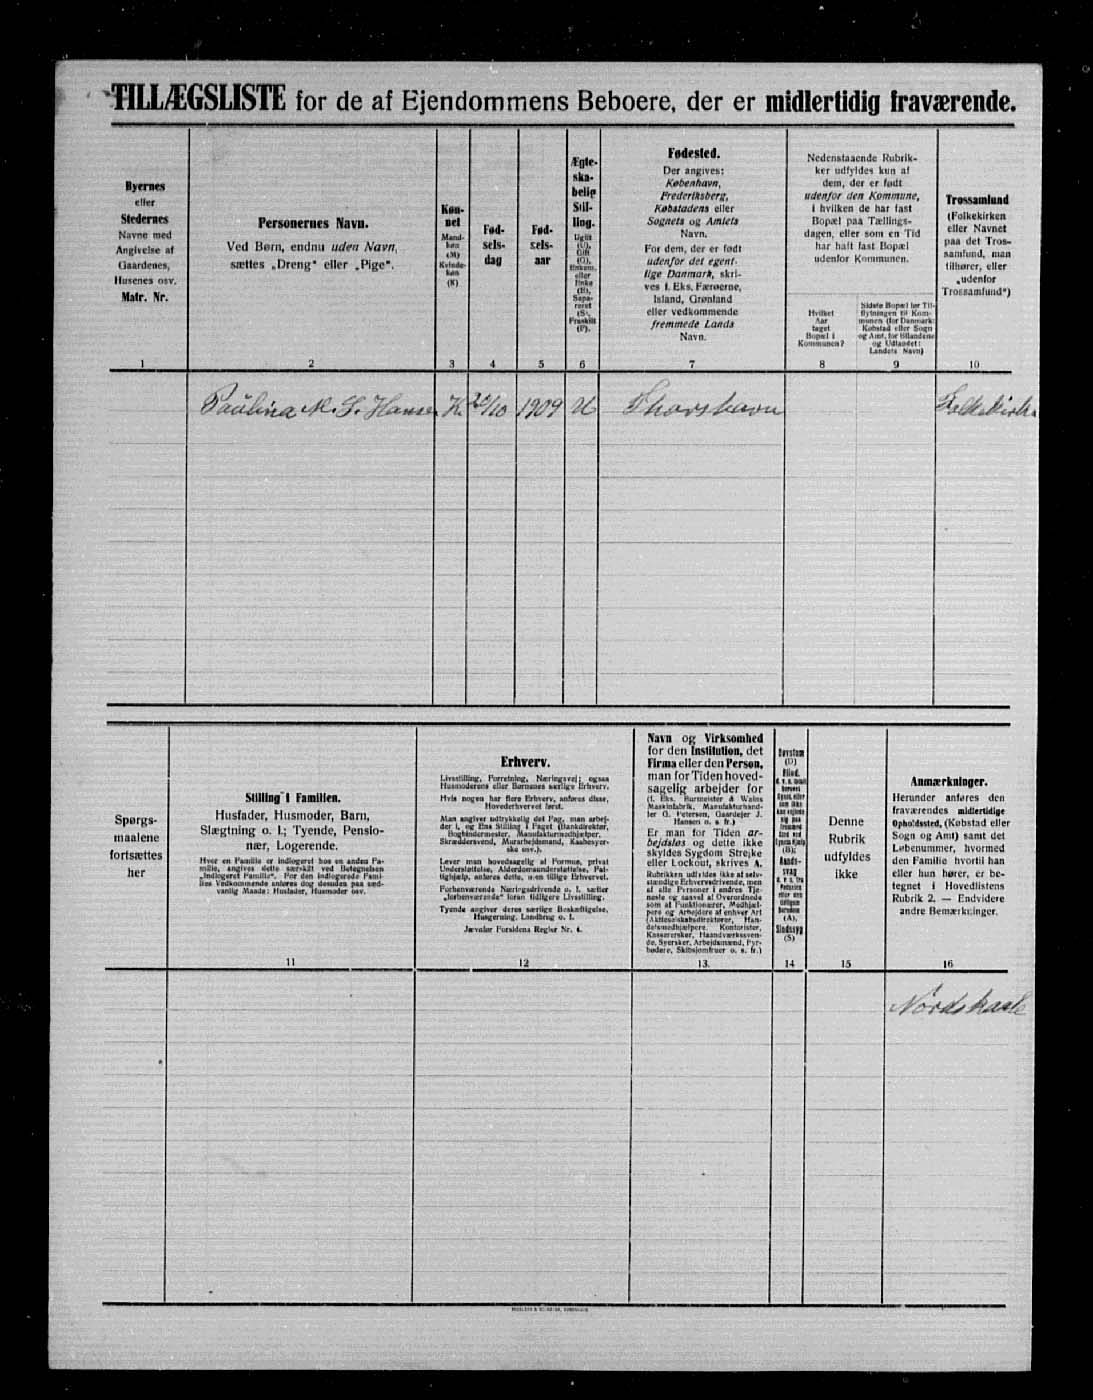 TILLÆGSLISTE for de af Ejendommens Beboere, der er midlertidig fraværende.
Byernes
eller
Stedernes
Navne med
Angivelse af
Gaardenes,
Husenes osv.
Matr. Nr.
1
Personernes Navn.
Ved Børn, endnu uden Navn,
sættes „Dreng“ eller „Pige“.
2
Køn-
net
Mand-
køn
(M)
Kvinde-
køn
(K)
3
Fød-
sels-
dag
4
Fød-
sels-
aar
5
Ægte-
ska-
belig
Stil-
ling.
Ugift
(U),
Gift
(G),
Enkem.
eller
Enke
(E),
Sepa-
reret
(S),
Fraskilt
(F).
6
Fødested.
Der angives:
København,
Frederiksberg,
Købstadens eller
Sognets og Amtets
Navn.
For dem, der er født
udenfor det egent-
lige Danmark, skri-
ves f. Eks. Færøerne,
Island, Grønland
eller vedkommende
fremmede Lands
Navn.
7
Nedenstaaende Rubrik-
ker udfyldes kun af
dem, der er født
udenfor den Kommune,
i hvilken de har fast
Bopæl paa Tællings-
dagen, eller som en Tid
har haft fast Bopæl
udenfor Kommunen.
Hvilket
Aar
taget
Bopæl i
Kommunen?
8
Sidste Bopæl før Til-
flytningen til Kom-
munen (for Danmark:
Købstad eller Sogn
og Amt, for Bilandene
og Udlandet:
Landets Navn)
9
Trossamfund
(Folkekirken
eller Navnet
paa det Tros-
samfund, man
tilhører, eller
„udenfor
Trossamfund“)
10
Paulina M. S. Hansen K. 20/10 1909 U Thorshavn Folkekirke
Spørgs-
maalene
fortsættes
her
Stilling i Familien.
Husfader, Husmoder, Barn,
Slægtning o. l.; Tyende, Pensio-
nær, Logerende.
Hvor en Familie er indlogeret hos en anden Fa-
milie, angives dette særskilt ved Betegnelsen
„Indlogeret Familie“. For den indlogerede Fami-
lies Vedkommende anføres dog desuden paa sæd-
vanlig Maade: Husfader, Husmoder osv.
11
Erhverv.
Livsstilling, Forretning, Næringsvej; ogsaa
Husmoderens eller Børnenes særlige Erhverv.
Hvis nogen har flere Erhverv, anføres disse,
Hovederhvervet først.
Man angiver udtrykkelig det Fag, man arbej-
der i, og Ens Stilling i Faget (Bankdirektør,
Bogbindermester, Manufakturmedhjælper,
Skræddersvend, Murarbejdsmand, Kaabesyer-
ske osv.).
Lever man hovedsagelig af Formue, privat
Understøttelse, Alderdomsunderstøttelse, Fat-
tighjælp, anføres dette, men tillige Erhvervet.
Forhenværende Næringsdrivende o. l. sætter
„forhenværende“ foran tidligere Livsstilling.
Tyende angiver deres særlige Beskæftigelse,
Husgerning, Landbrug o. l.
Jævnfør Forsidens Regler Nr. 4.
12
Navn og Virksomhed
for den Institution, det
Firma eller den Person,
man for Tiden hoved-
sagelig arbejder for
(f. Eks. Burmeister & Wains
Maskinfabrik, Manufakturhand-
ler G. Petersen, Gaardejer J.
Hansen o. s. fr.)
Er man for Tiden ar-
bejdsløs og dette ikke
skyldes Sygdom Strejke
eller Lockout, skrives A.
Rubrikken udfyldes ikke af selv-
stændige Erhvervsdrivende, men
af alle Personer i andres Tje-
neste og saavel af Overordnede
som af Funktionærer, Medhjæl-
pere og Arbejdere af enhver Art
(Aktieselskabsdirektører, Han-
delsmedhjælpere, Kontorister,
Kasserersker, Haandværkssven-
de, Syersker, Arbejdsmænd, Fyr-
bødere, Skibsjomfruer o. s. fr.)
13.
Døvstum
(D)
Blind,
14
Denne
Rubrik
udfyldes
ikke
15
Anmærkninger.
Herunder anføres den
fraværendes midlertidige
Opholdssted, (Købstad eller
Sogn og Amt) samt det
Løbenummer, hvormed
den Familie hvortil han
eller hun hører, er be-
tegnet i Hovedlistens
Rubrik 2. — Endvidere
andre Bemærkninger.
16
Nordskaale